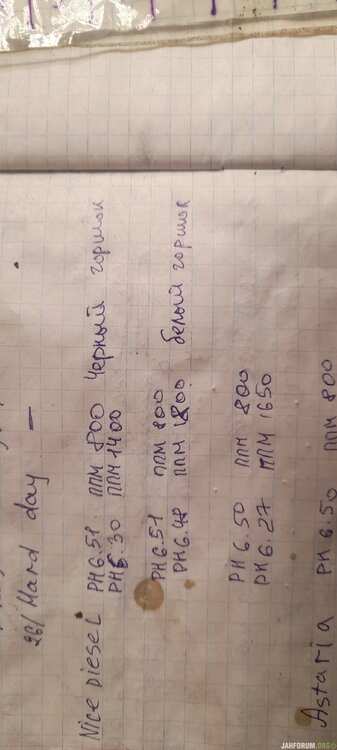 26/ Hard day —
Nice Diesel PH 6.51 ппм 800 Черный горшок
PH 6.30 ппм 1400
PH 6.51 ппм 800
PH 6.48 ппм 1800 белый горшок
PH 6.50 ппм 800
PH 6.27 ппм 1650
Astaria PH 6.50 ппм 800
JAHFORUM.ORG